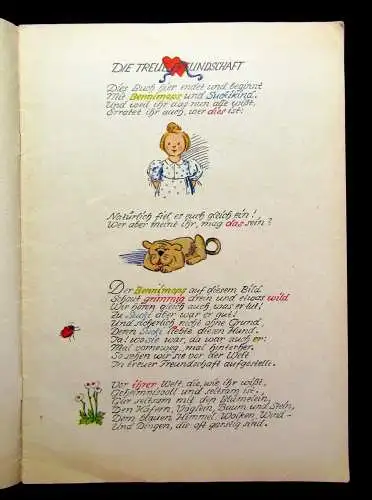 DIE TREUE FREUNDSCHAFT
Dies Buch hier endet und beginnt
Mit Bennimops und Suckikind.
Und weil ihr das nun alle wißt,
Erratet ihr auch, wer dies ist.
Natürlich fiel es euch gleich ein!
Wer aber meint ihr, mag das sein?
Der Bennimops auf diesem Bild
Schaut grimmig drein und etwas wild
Wir hören gleich auch was er tut!
Zu Sucki aber war er gut!
Und sicherlich nicht ohne Grund
Denn Sucki liebte diesen Hund.
Ja! wo sie war, da war auch er:
Mal vorneweg, mal hinterher,
So sehen wir sie vor der Welt
In treuer Freundschaft aufgestellt.
Vor ihrer Welt, die, wie ihr wißt,
Geheimnisvoll und seltsam ist,
Gar seltsam mit den Blümelein,
Den Käfern, Vöglein, Baum und Stein,
Dem blauen Himmel, Wolken, Wind –
Und Dingen, die oft garstig sind.